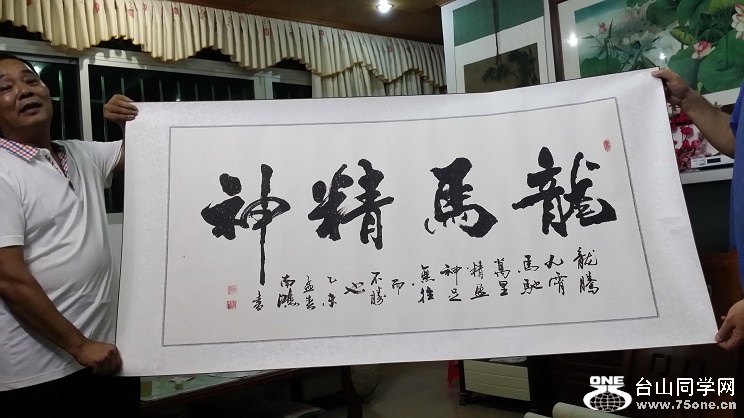 龍馬精神
龍騰
九霄
馬馳
萬里
精益
神足
無往
而
不勝
也
乙未
孟春
南
書
ONE
台山同学网
www.75one.cn